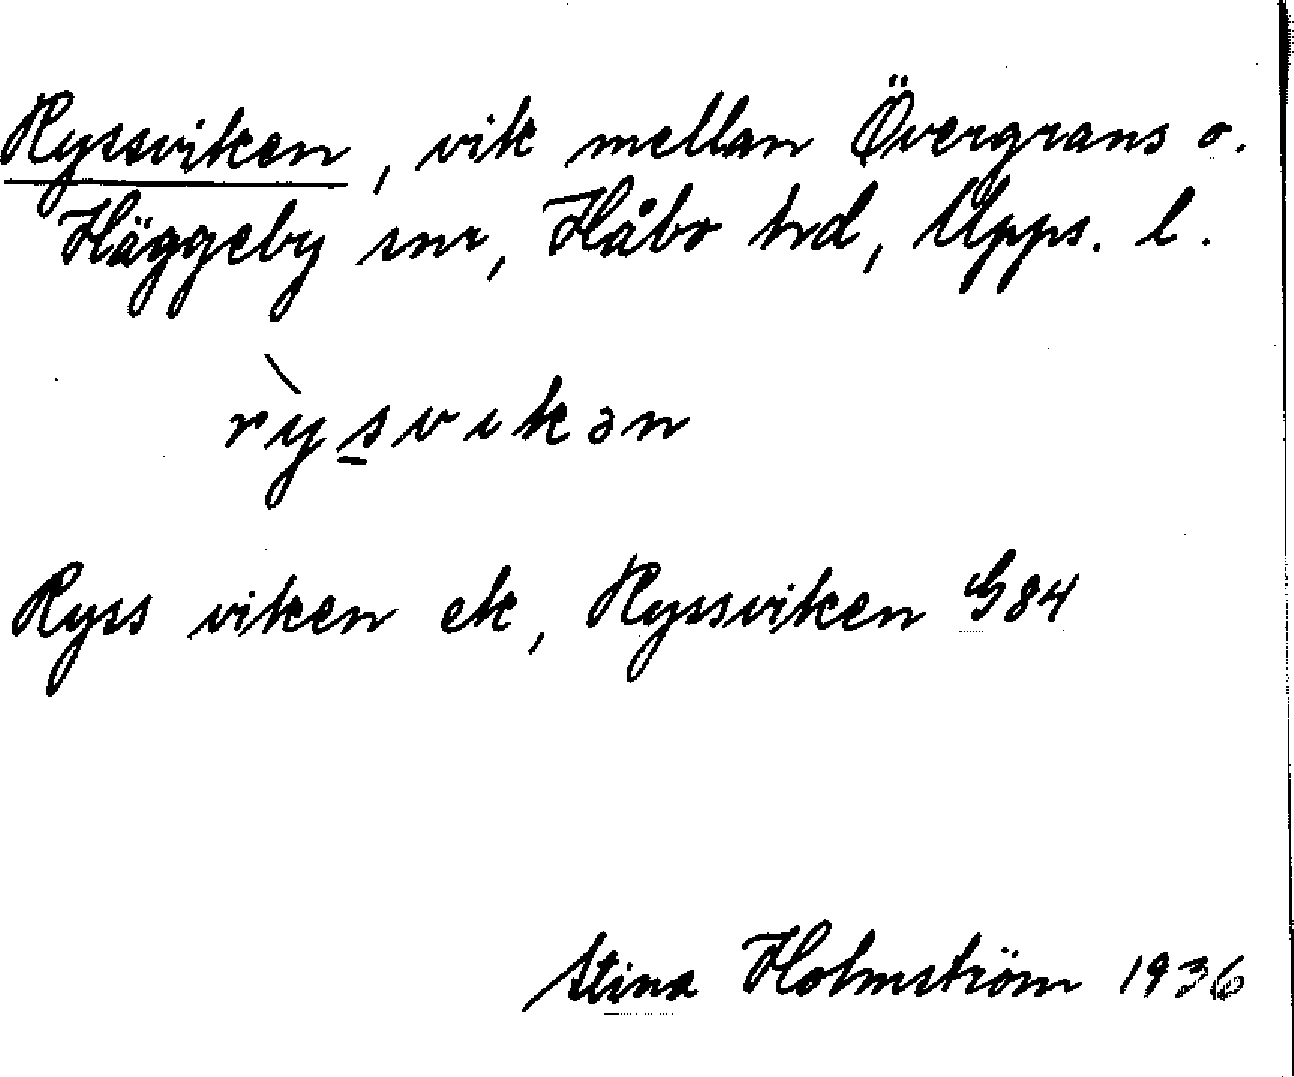 Ryssviken, vik mellan Övergrans o.
Häggeby snr, Håbo hrd, Upps. l.
rỳsvikən
Ryss viken ek, Ryssviken G84
Stina Holmström 1936